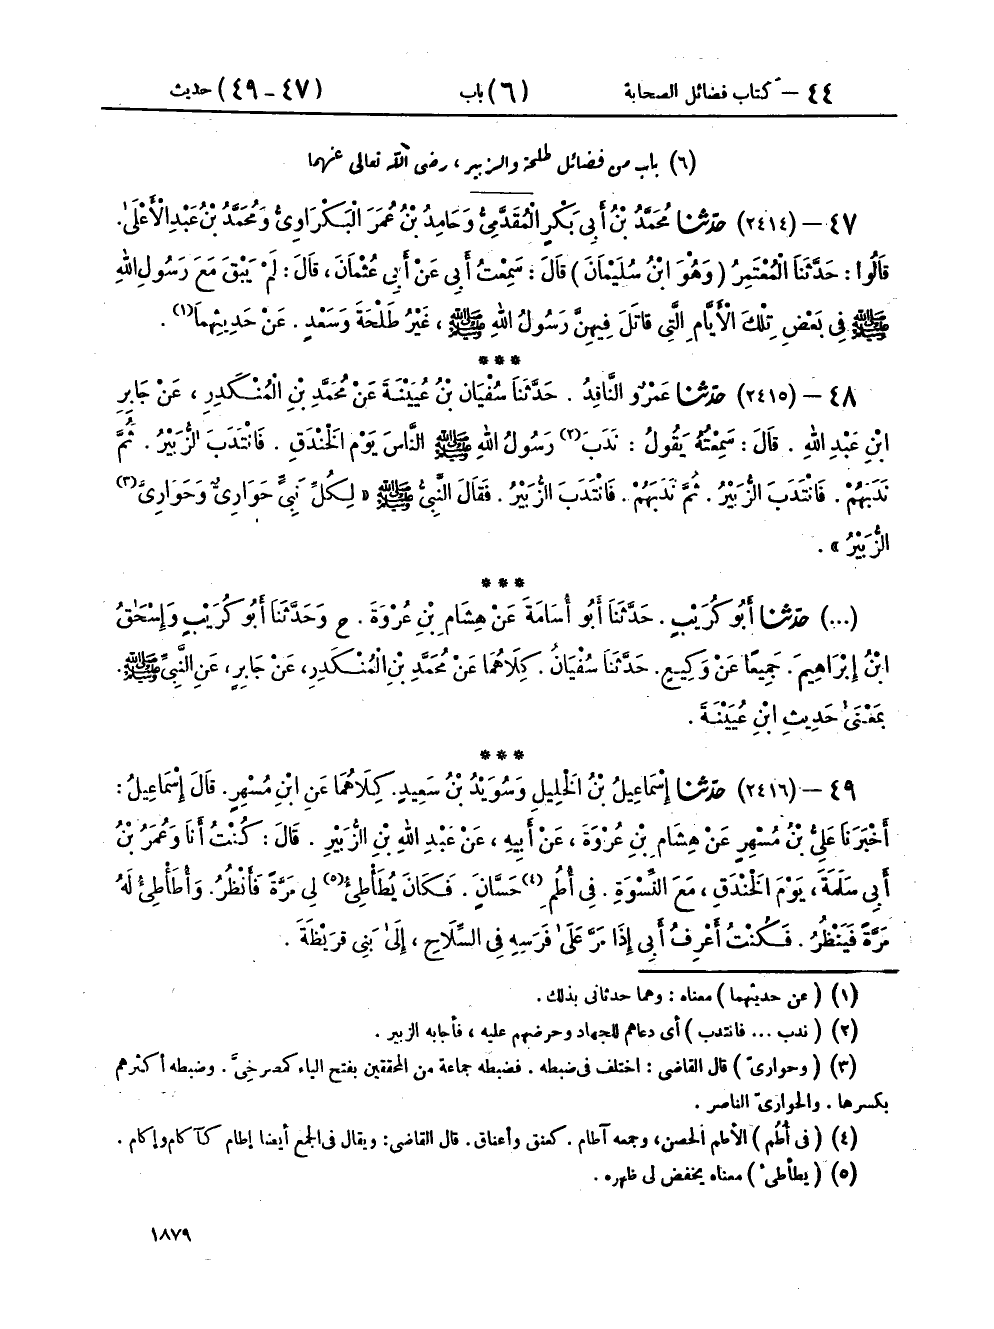 ٤٤ – كتاب فضائل الصحابة (٦) باب (٤٧ - ٤٩) حديث
(٦) باب من فضائل طلحة والزبير ، رضى الله تعالى عنهما
٤٧ – (٢٤١٤) حَدَّثَنَا مُحَمَّدُ بْنُ أَبِي بَكْرٍ الْمُقَدَّمِيُّ وَحَامِدُ بْنُ عُمَرَ الْبَكْرَاوِيُّ وَمُحَمَّدُ بْنُ عَبْدِ الْأَعْلَىٰ.
قَالُوا : حَدَّثَنَا الْمُعْتَمِرُ ( وَهُوَ ابْنُ سُلَيْمَانَ ) قَالَ : سَمِعْتُ أَبِي عَنْ أَبِي عُثْمَانَ ، قَالَ : لَمْ يَبْقَ مَعَ رَسُولِ اللهِ
ﷺ فِي بَعْضِ تِلْكَ الْأَيَّامِ الَّتِي قَاتَلَ فِيهِنَّ رَسُولُ اللهِ ﷺ ، غَيْرُ طَلْحَةَ وَسَعْدٍ . عَنْ حَدِيثِهِمَا(١) .
***
٤٨ – (٢٤١٥) حَدَّثَنَا عَمْرٌو النَّاقِدُ . حَدَّثَنَا سُفْيَانُ بْنُ عُيَيْنَةَ عَنْ مُحَمَّدِ بْنِ الْمُنْكَدِرِ ، عَنْ جَابِرِ
ابْنِ عَبْدِ اللهِ . قَالَ : سَمِعْتُهُ يَقُولُ : نَدَبَ(٢) رَسُولُ اللهِ ﷺ النَّاسَ يَوْمَ الْخَنْدَقِ . فَانْتَدَبَ الزُّبَيْرُ . ثُمَّ
نَدَبَهُمْ . فَانْتَدَبَ الزُّبَيْرُ . ثُمَّ نَدَبَهُمْ . فَانْتَدَبَ الزُّبَيْرُ . فَقَالَ النَّبِيُّ ﷺ « لِكُلِّ نَبِيٍّ حَوَارِيٌّ وَحَوَارِيَّ(٣)
الزُّبَيْرُ » .
***
(...) حَدَّثَنَا أَبُو كُرَيْبٍ . حَدَّثَنَا أَبُو أُسَامَةَ عَنْ هِشَامِ بْنِ عُرْوَةَ . ح وَحَدَّثَنَا أَبُو كُرَيْبٍ وَإِسْحَٰقُ
ابْنُ إِبْرَاهِيمَ . جَمِيعًا عَنْ وَكِيعٍ . حَدَّثَنَا سُفْيَانُ . كِلَاهُمَا عَنْ مُحَمَّدِ بْنِ الْمُنْكَدِرِ ، عَنْ جَابِرٍ ، عَنِ النَّبِيِّ ﷺ .
بِمَعْنَىٰ حَدِيثِ ابْنِ عُيَيْنَةَ .
***
٤٩ – (٢٤١٦) حَدَّثَنَا إِسْمَاعِيلُ بْنُ الْخَلِيلِ وَسُوَيْدُ بْنُ سَعِيدٍ . كِلَاهُمَا عَنِ ابْنِ مُسْهِرٍ . قَالَ إِسْمَاعِيلُ :
أَخْبَرَنَا عَلِيُّ بْنُ مُسْهِرٍ عَنْ هِشَامِ بْنِ عُرْوَةَ ، عَنْ أَبِيهِ ، عَنْ عَبْدِ اللهِ بْنِ الزُّبَيْرِ . قَالَ : كُنْتُ أَنَا وَعُمَرُ بْنُ
أَبِي سَلَمَةَ ، يَوْمَ الْخَنْدَقِ ، مَعَ النِّسْوَةِ . فِي أُطُمِ(٤) حَسَّانَ . فَكَانَ يُطَأْطِئُ(٥) لِي مَرَّةً فَأَنْظُرُ . وَأُطَأْطِئُ لَهُ
مَرَّةً فَيَنْظُرُ . فَكُنْتُ أَعْرِفُ أَبِي إِذَا مَرَّ عَلَىٰ فَرَسِهِ فِي السِّلَاحِ ، إِلَىٰ بَنِي قُرَيْظَةَ .
(١) ( عن حديثهما ) معناه : وهما حدثانى بذلك .
(٢) ( ندب ... فانتدب ) أى دعاهم للجهاد وحرضهم عليه ، فأجابه الزبير .
(٣) ( وحوارىّ ) قال القاضى : اختلف فى ضبطه . فضبطه جماعة من المحققين بفتح الياء كمصرخىَّ . وضبطه أكثرهم
بكسرها . والحوارىّ الناصر .
(٤) ( فى أُطُم ) الأطم الحصن ، وجمعه آطام . كعنق وأعناق . قال القاضى : ويقال فى الجمع أيضا إطام كآكام وإكام .
(٥) ( يطأطئ ) معناه يخفض لى ظهره .
١٨٧٩